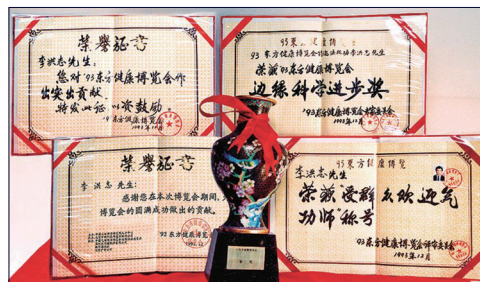 荣誉证书
李洪志先生：
您对'93东方健康博览会作
出突出贡献，
特发此证，以资鼓励。
'93东方健康博览会
1993年12月
93东方健康博览
93东方健康博览会
李洪志先生
荣获'93东方健康博览会
边缘科学进步奖
'93东方健康博览会评审委员会
1993年12月
荣誉证书
李洪志 先生：
感谢您在本次博览会期间，
博览会的圆满成功做出的贡献。
93东方健康博览会
93东方健康博览
李洪志先生：
荣获“受群众欢迎气
功师”称号
93东方健康博览会评审委员会
1993年12月